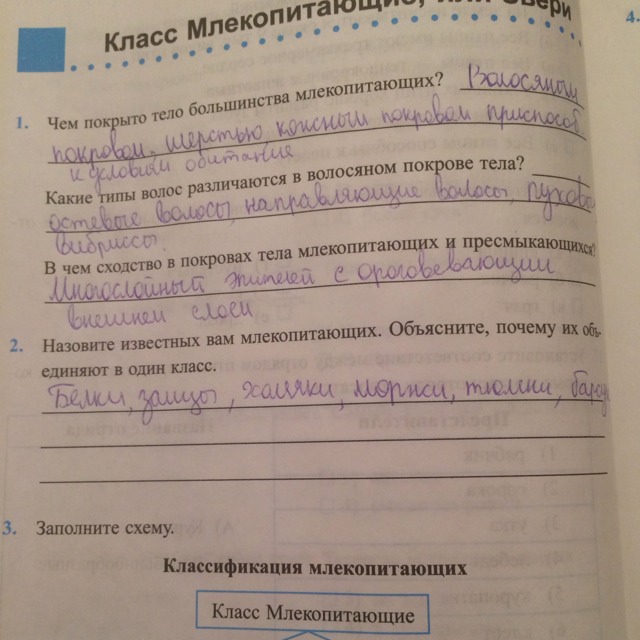 Класс Млекопитающие, или Звери
4.
1. Чем покрыто тело большинства млекопитающих? Волосяным
покровом, шерстью кожным покровом приспособ
к условиям обитание
Какие типы волос различаются в волосяном покрове тела?
остевые волосы, направляющие волосы, пухов
вибриссы.
В чем сходство в покровах тела млекопитающих и пресмыкающихся?
Многослойный эпителей с ороговевающим
внешнем слоем
2. Назовите известных вам млекопитающих. Объясните, почему их объ-
единяют в один класс.
Белки, зайцы, хомяки, моржи, тюлени, бар
3. Заполните схему.
Классификация млекопитающих
Класс Млекопитающие